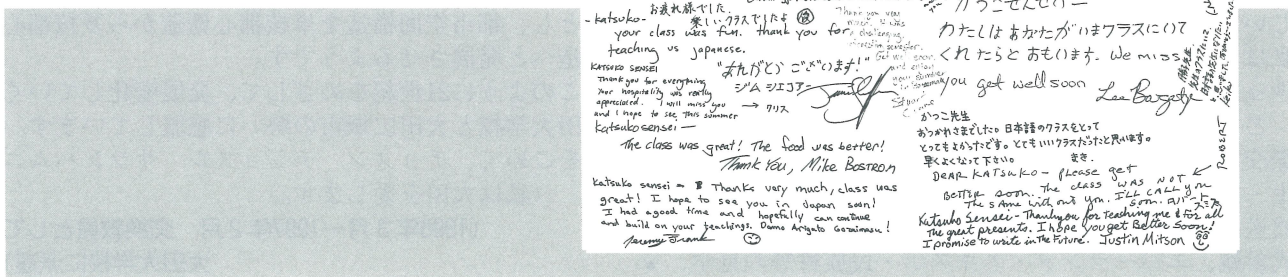 お疲れ様でした。
楽しいクラスでしたよ
-katsuko-
your class was fun. thank you for
teaching us japanese.
"ありがとう ございます!"
ジム シエコアー
KATSUKO SENSEI
Thank you for everything
Your hospitality was really
appreciated. I will miss you
and I hope to see this summer
→ クリス
Katsuko sensei —
The class was great! The food was better!
Thank You, Mike Bostrom
Katsuko sensei - Thanks very much, class was
great! I hope to see you in Japan soon!
I had a good time and hopefully can continue
and build on your teachings. Domo Arigato Gozaimasu!
Jeremy Frank
Thank you very
much. It was
a challenging,
semester.
Get well soon
and enjoy
your summer
かつこせんせい ー
わたしは あなたが いまクラスにいて
くれ たらと おもいます. We miss
you get well soon
かつこ先生
おつかれさまでした。日本語のクラスをとって
とってもよかったです。とてもいいクラスだったと思います。
早くよくなって下さい。
まき.
DEAR KATSUKO - please get
BETTER soon. The class WAS NOT
The sAme without ym. I'LL CALL you
soon. ロバート
ROBERT
Katsuko Sensei - Thankyou for teaching me & for all
The great presents. I hope you get Better Soon!
I promise to write in the Future. Justin Mitson